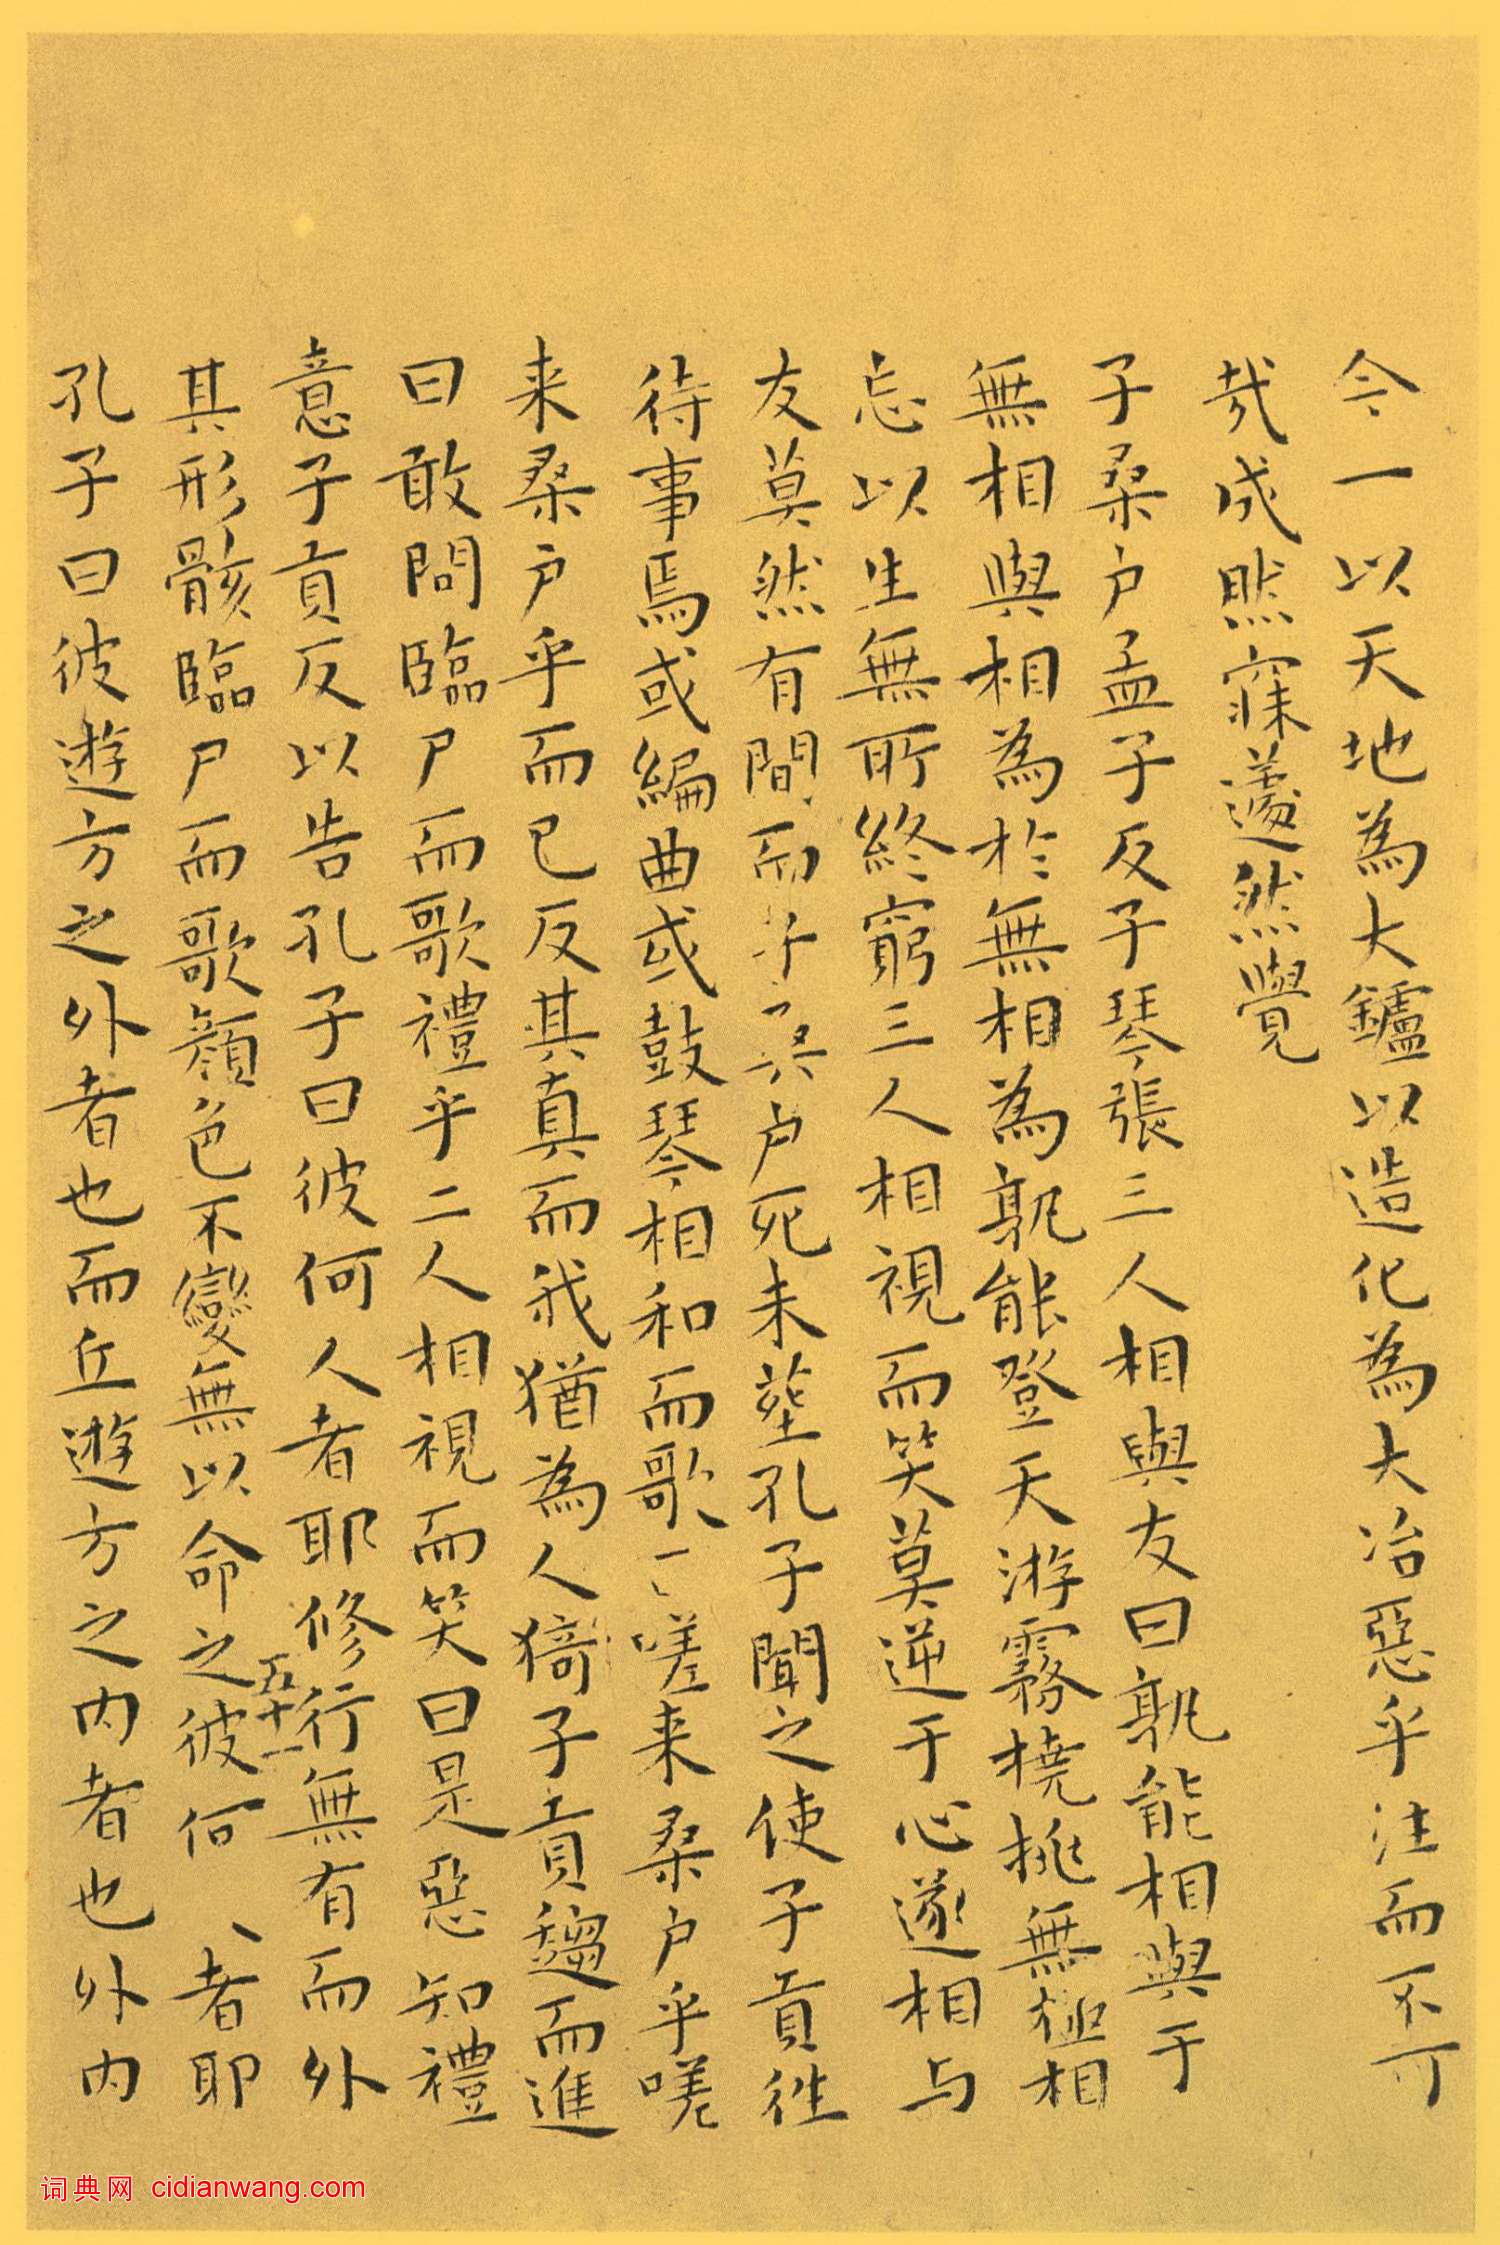 今一以天地為大鑪以造化為大冶惡乎注而不可
哉成然寐蘧然覺
子桑户孟子反子琴張三人相與友曰孰能相與于
無相與相為於無相為孰能登天游霧撓挑無極相
忘以生無所終窮三人相視而笑莫逆于心遂相与
友莫然有間而子桑户死未塟孔子聞之使子貢往
待事焉或編曲或鼓琴相和而歌曰嗟来桑户乎嗟
来桑户乎而已反其真而我猶為人猗子貢趨而進
曰敢問臨尸而歌禮乎二人相視而笑曰是惡知禮
意子貢反以告孔子曰彼何人者耶修行無有而外
其形骸臨尸而歌顔色不變無以命之彼何人者耶
五十一
孔子曰彼遊方之外者也而丘遊方之内者也外内
词典网 cidianwang.com